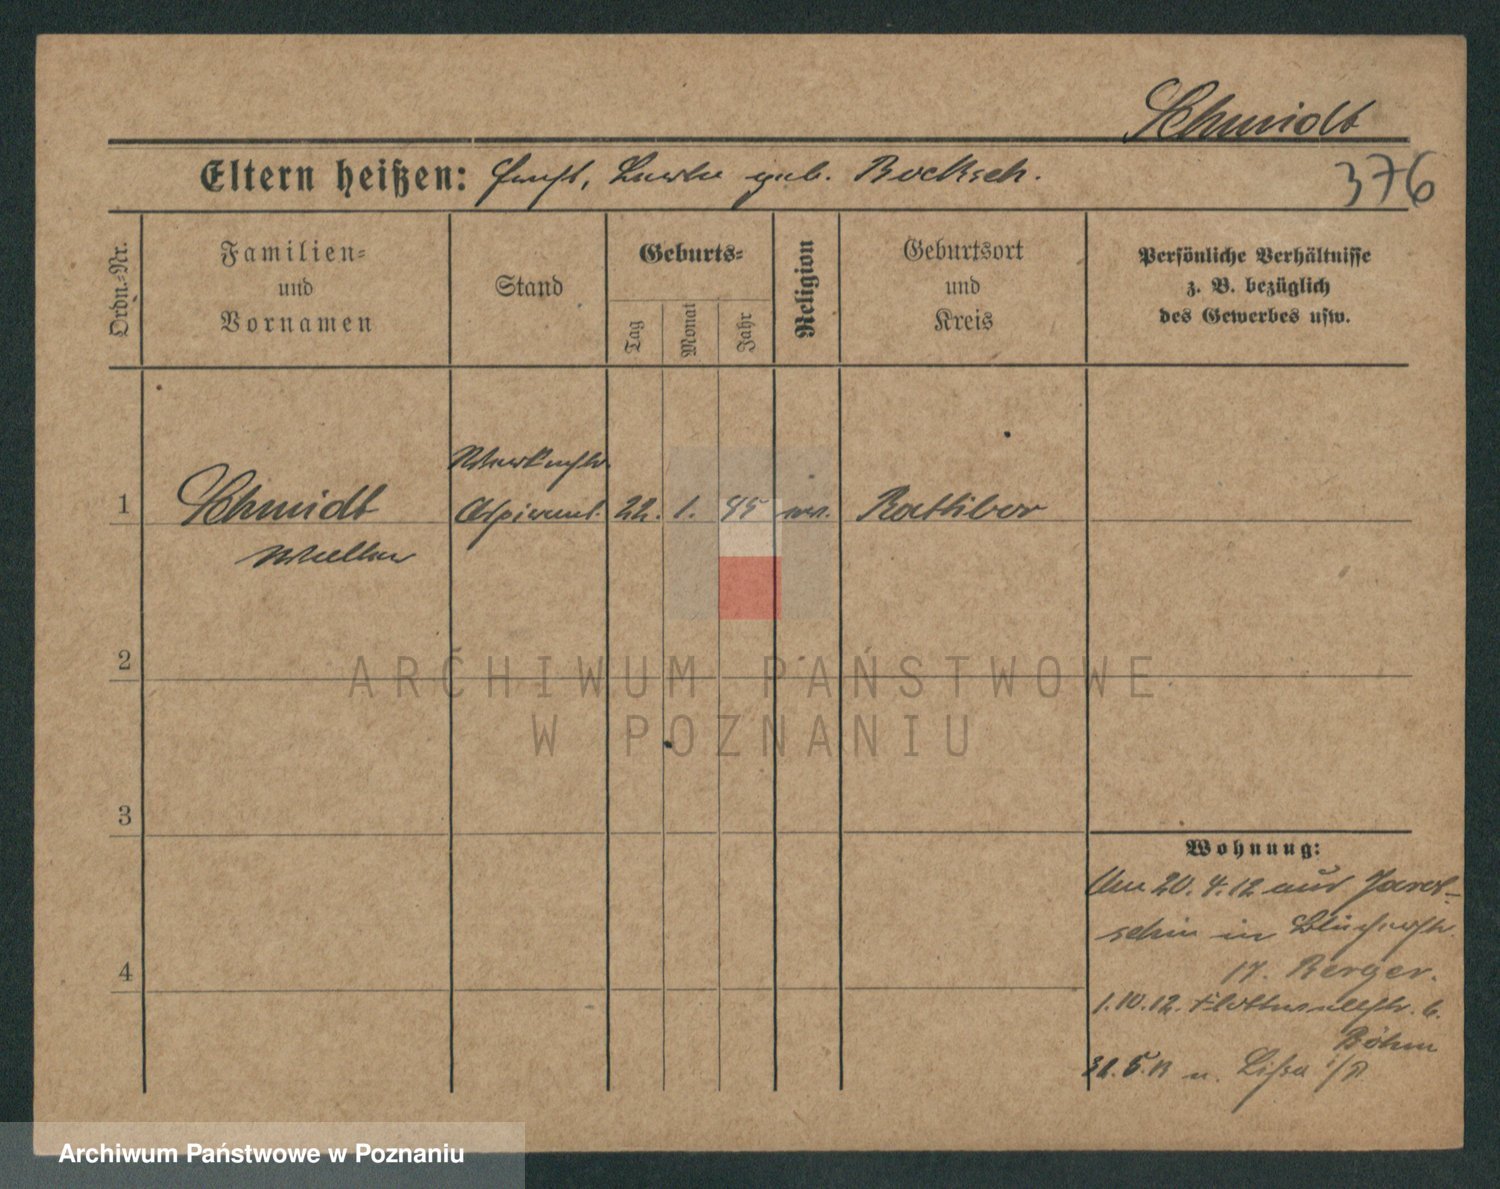 Schmidt
376
Eltern heißen: Bocksch.
Ordn.-Nr.
Familien-
und
Vornamen
Stand
Geburts-
Tag
Monat
Jahr
Religion
Geburtsort
und
Kreis
Persönliche Verhältnisse
z. B. bezüglich
des Gewerbes usw.
1
Schmidt
Aspirant.
22. 1. 95
Ratibor
2
ARCHIWUM PAŃSTWOWE
W POZNANIU
3
Wohnung:
Am 20. 4. 12 aus Jarot-
schin in Blücherstr.
17. Berger.
4
1. 10. 12.
Böhm
5. n. Lissa i/P
Archiwum Państwowe w Poznaniu